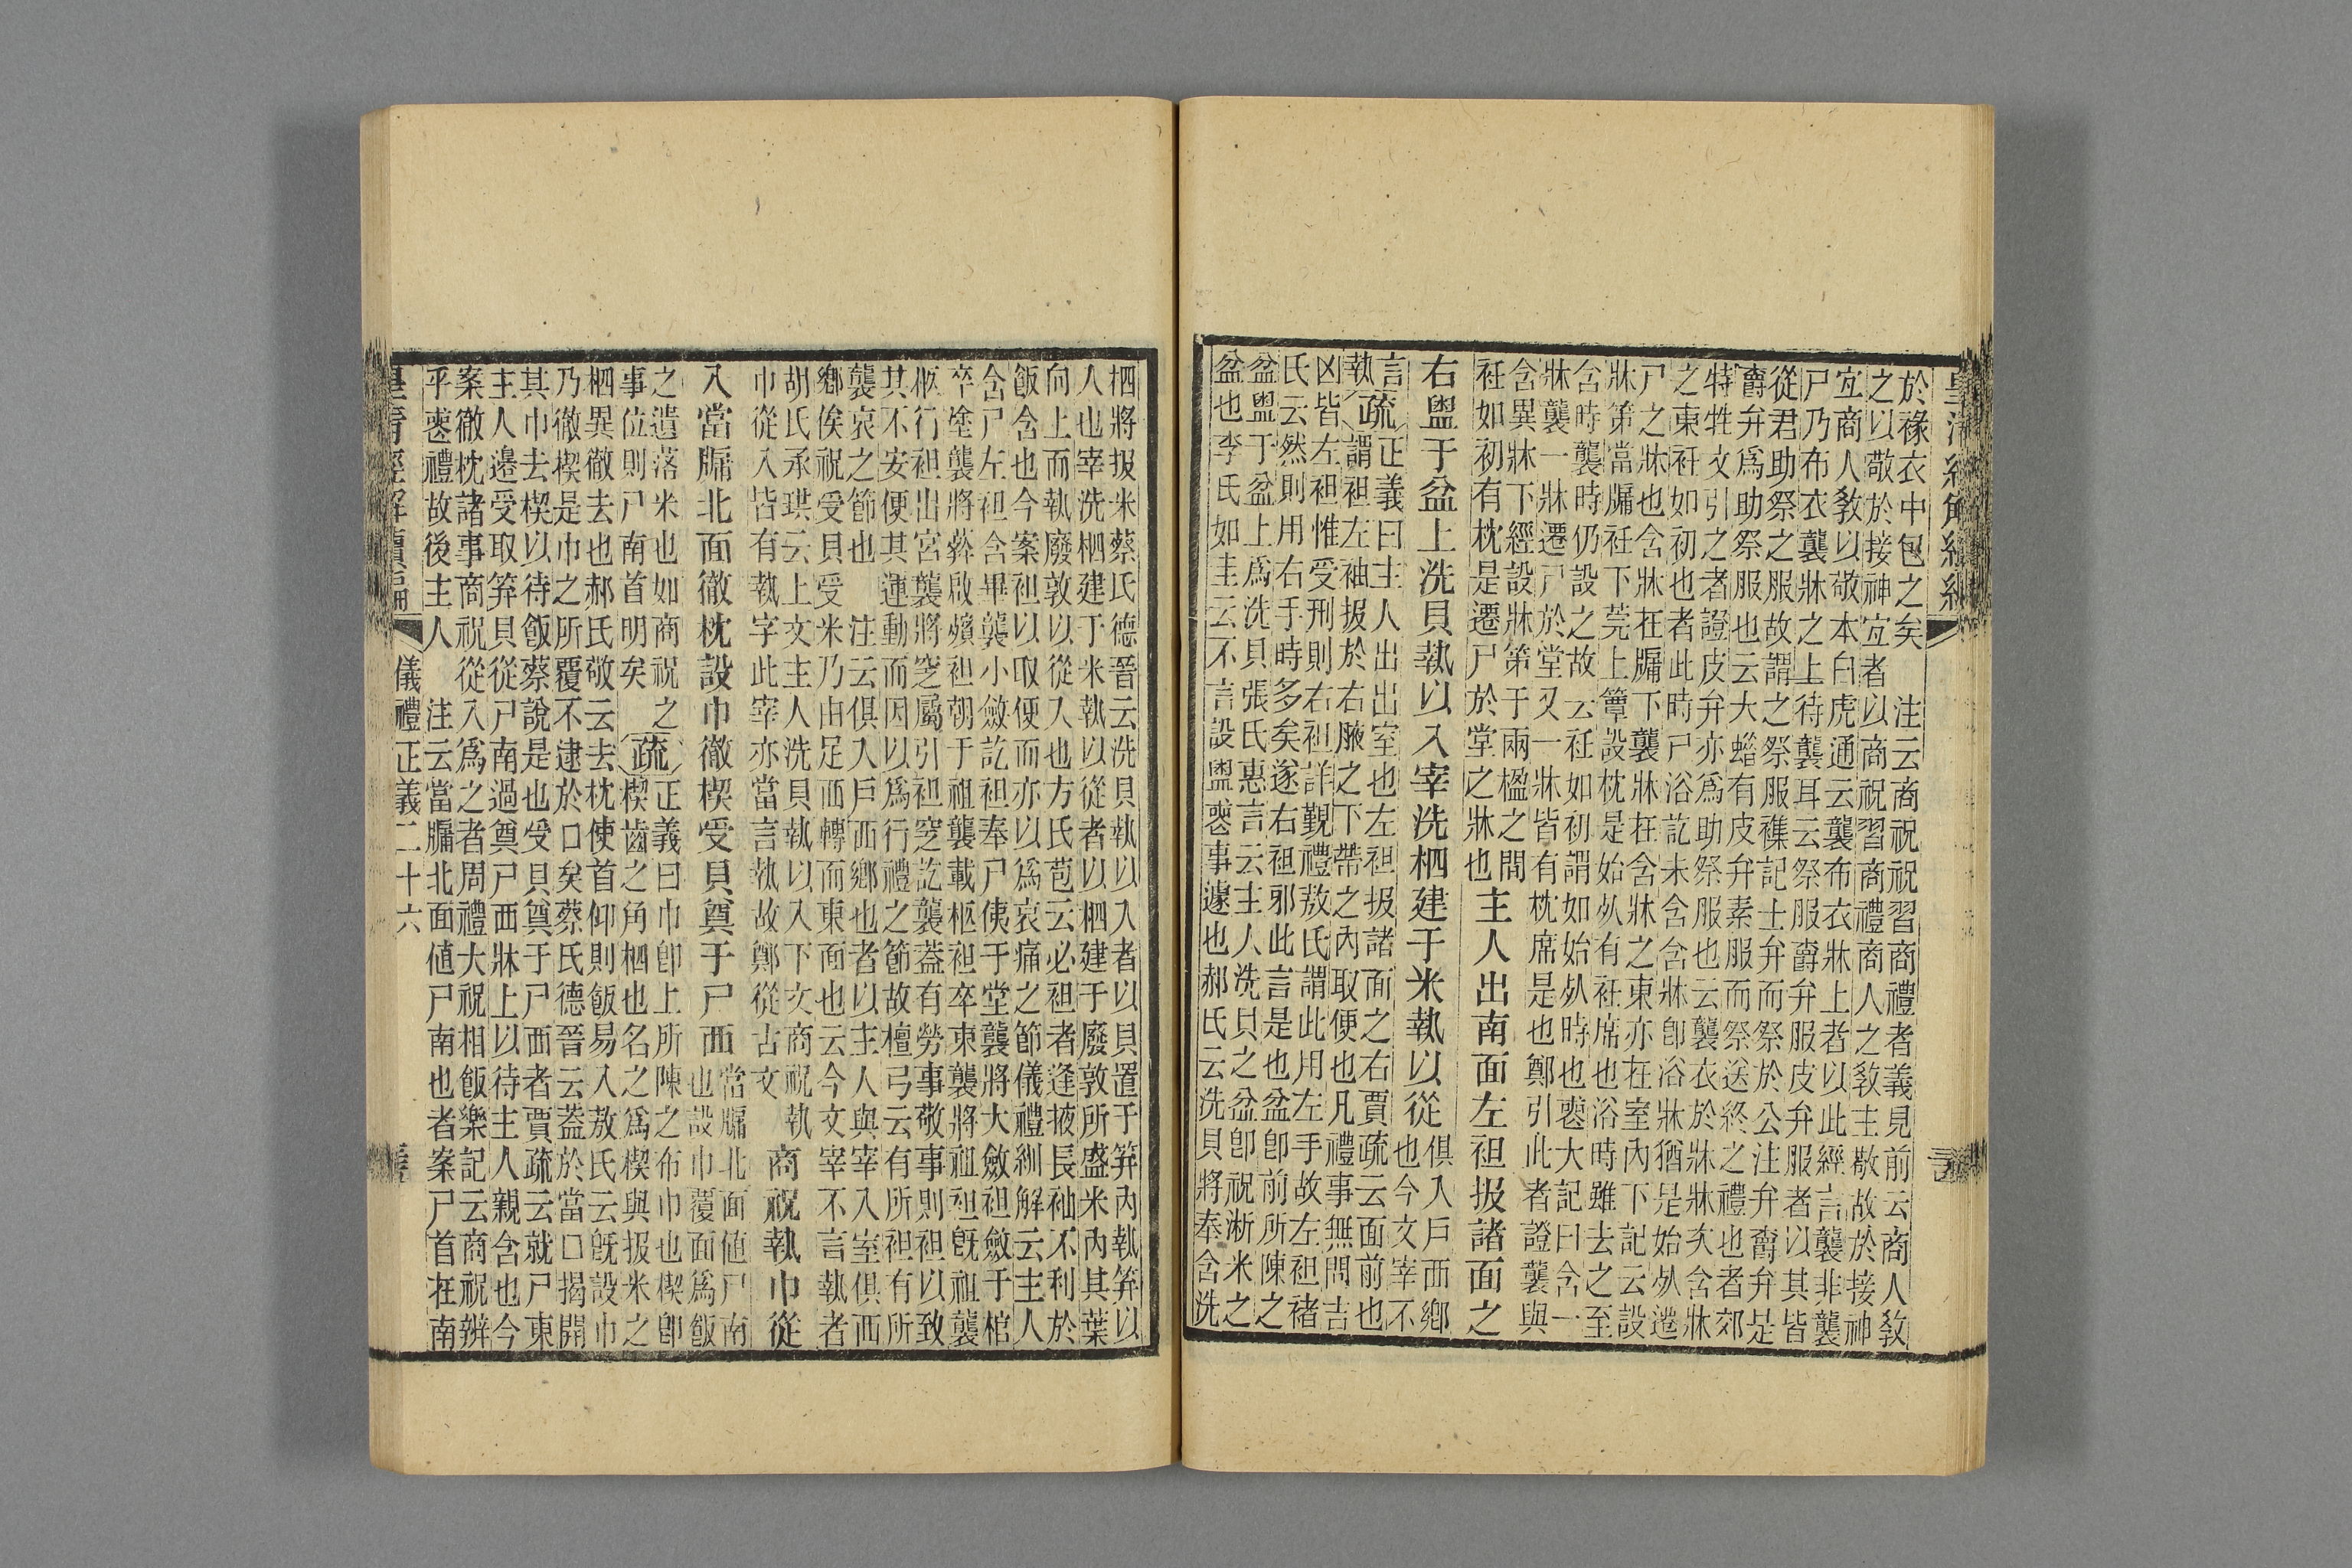 於祿衣中包之矣　注云商祝祝習商禮者義見前云商人敎
之以敬於接神宐者以商祝習商禮商人之敎主敬故於接神
宐商人敎以敬本白虎通云襲布衣牀上者以此經言襲非襲
尸乃布衣襲牀之上待襲耳云祭服爵弁服皮弁服者以其皆
從君助祭之服故謂之祭服襍記士弁而祭於公注弁爵弁是
爵弁爲助祭服也云大蜡有皮弁素服而祭送終之禮也者郊
特牲文引之者證皮弁亦爲助祭服也云襲衣於牀牀次含牀
之東衽如初也者此時尸浴訖未含含牀卽浴牀猶是始死遷
尸之牀也含牀在牖下襲牀在含牀之東亦在室內下記云設
牀第當牖衽下莞上簟設枕是始死有衽席也浴時雖去之至
含時襲時仍設之故云衽如初謂如始死時也䘮大記曰含一
牀襲一牀遷尸於堂又一牀皆有枕席是也鄭引此者證襲與
含異牀下經設牀第于兩楹之間
衽如初有枕是遷尸於堂之牀也
主人出南面左袒扱諸面之
右盥于盆上洗貝執以入宰洗柶建于米執以從
俱入戶西鄉
也今文宰不
言
執
疏
正義曰主人出出室也左袒扱諸面之右賈疏云面前也
謂袒左袖扱於右腋之下帶之內取便也凡禮事無問吉
凶皆左袒惟受刑則右袒詳覲禮敖氏謂此用左手故左袒褚
氏云然則用右手時多矣遂右袒邪此言是也盆卽前所陳之
盆盥于盆上爲洗貝張氏惠言云主人洗貝之盆卽祝淅米之
盆也李氏如圭云不言設盥䘮事遽也郝氏云洗貝將奉含洗
柶將扱米蔡氏德晉云洗貝執以入者以貝置于笲內執笲以
人也宰洗柶建于米執以從者以柶建于廢敦所盛米內其葉
向上而執廢敦以從入也方氏苞云必袒者逢掖長袖不利於
飯含也今案袒以取便而亦以爲哀痛之節儀禮紃解云主人
含尸左袒含畢襲小斂訖袒奉尸侇于堂襲將大斂袒斂于棺
卒塗襲將葬啟殯袒朝于祖襲載柩袒卒束襲將祖袒旣祖襲
柩行袒出宮襲將窆屬引袒窆訖襲蓋有勞事敬事則袒以致
其不安便其運動而因以爲行禮之節故檀弓云有所袒有所
襲哀之節也　注云俱入戶西鄉也者以主人與宰入室俱西
鄉俟祝受貝受米乃由足西轉而東面也云今文宰不言執者
胡氏承珙云上文主人洗貝執以入下文商祝執
巾從入皆有執字此宰亦當言執故鄭從古文
商祝執巾從
入當牖北面徹枕設巾徹楔受貝奠于尸西
當牖北面値尸南
也設巾覆面爲飯
之遺落米也如商祝之
事位則尸南首明矣
疏
正義曰巾卽上所陳之布巾也楔卽
楔齒之角柶也名之爲楔與扱米之
柶異徹去也郝氏敬云去枕使首仰則飯易入敖氏云旣設巾
乃徹楔是巾之所覆不逮於口矣蔡氏德晉云蓋於當口揭開
其巾去楔以待飯蔡說是也受貝奠于尸西者賈疏云就尸東
主人邊受取笲貝從尸南過奠尸西牀上以待主人親含也今
案徹枕諸事商祝從入爲之者周禮大祝相飯樂記云商祝辨
乎䘮禮故後主人　注云當牖北面値尸南也者案尸首在南
皇清經解續編　儀禮正義二十六